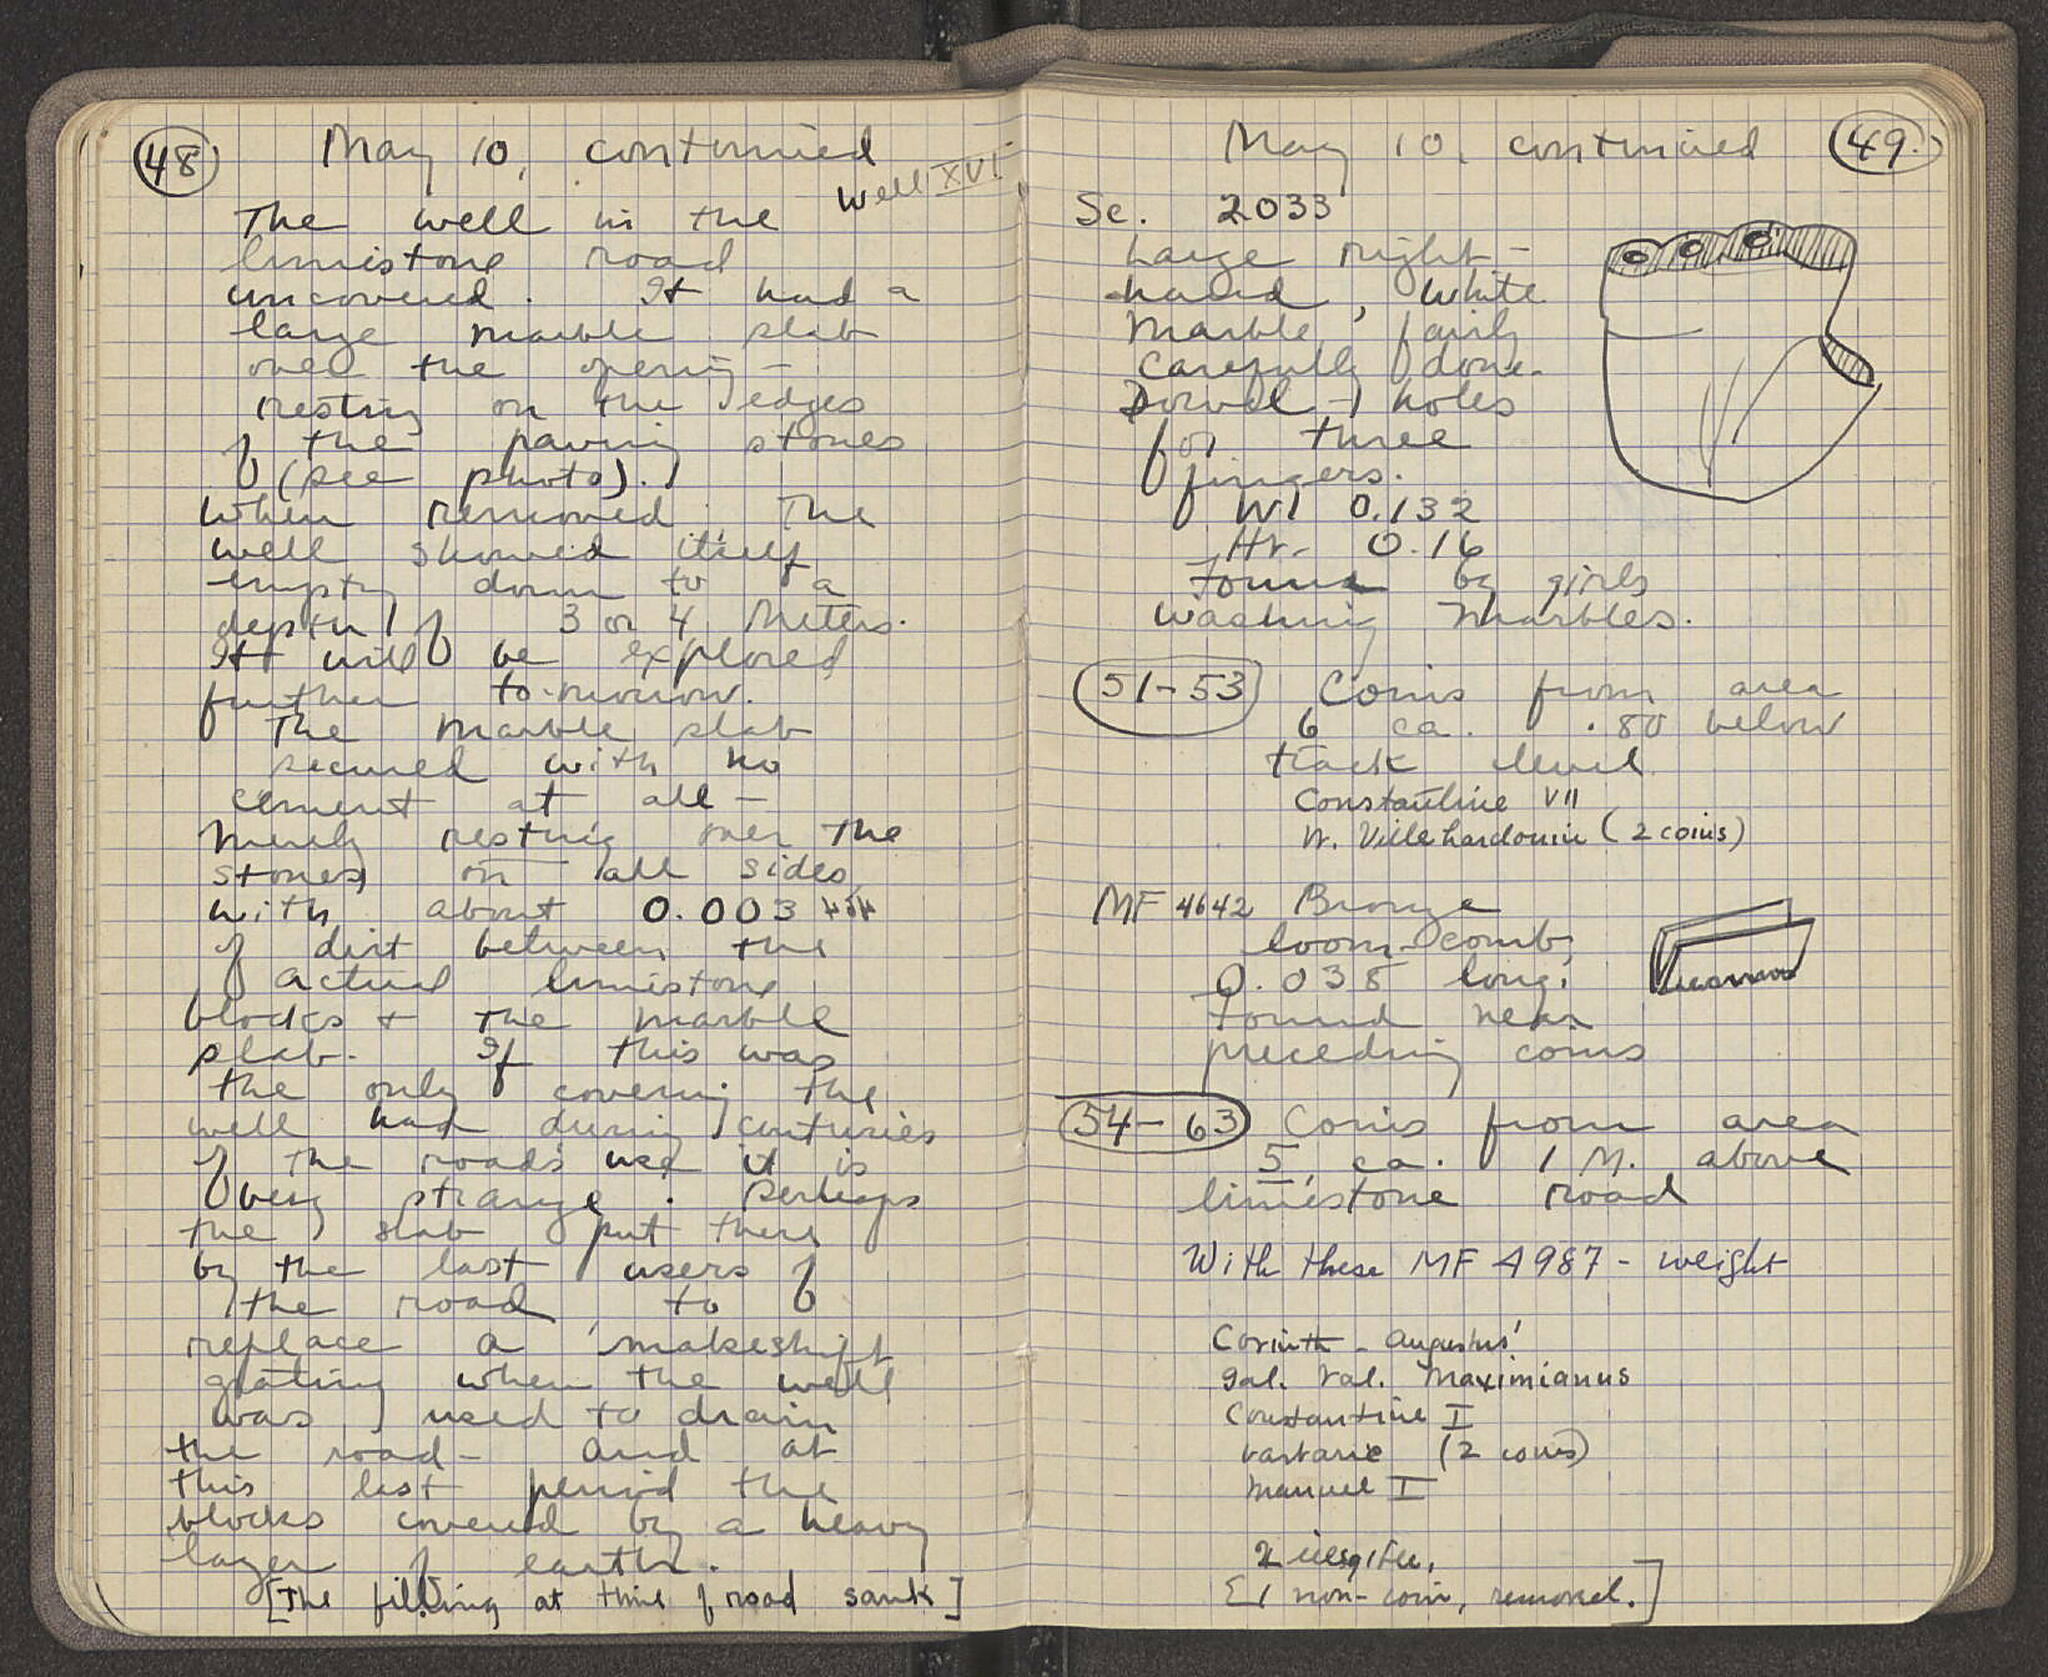 48
May 10, continued
Well XVI
The well in the
limestone road
uncovered. It had a
large marble slab
over the opening –
resting on the edges
of the paving stones
(see photo).
When removed the
well showed itself
empty down to a
depth of 3 or 4 meters.
It will be explored
further to-morrow.
The marble slab
secured with no
cement at all –
merely resting over the
stones on all sides,
with about 0.003
of dirt between the
actual limestone
blocks + the marble
slab. If this was
the only covering the
well had during centuries
of the road's use it is
very strange. Perhaps
the slab put there
by the last users of
the road to
replace a makeshift
grating when the well
was used to drain
the road – and at
this last period the
blocks covered by a heavy
layer of earth.
[The filling at time of road sank]
May 10, continued
49.
Sc. 2033
Large right-
hand, white
marble, fairly
carefully done.
Dowel-holes
for three
fingers.
W. 0.132
Ht. 0.16
Found by girls
washing marbles.
51-53 Coins from area
6 ca. .80 below
track level
Constantine VII
W. Villehardouin (2 coins)
MF 4642 Bronze
loom-comb,
0.038 long.
Found near
preceding coins
54-63 Coins from area
5, ca. 1 M. above
limestone road
With these MF 4987 - weight
Corinth - Augustus'
Gal. Val. Maximianus
Constantine I
barbaric (2 coins)
Manuel I
2 illegible.
[1 non-coin, removed.]